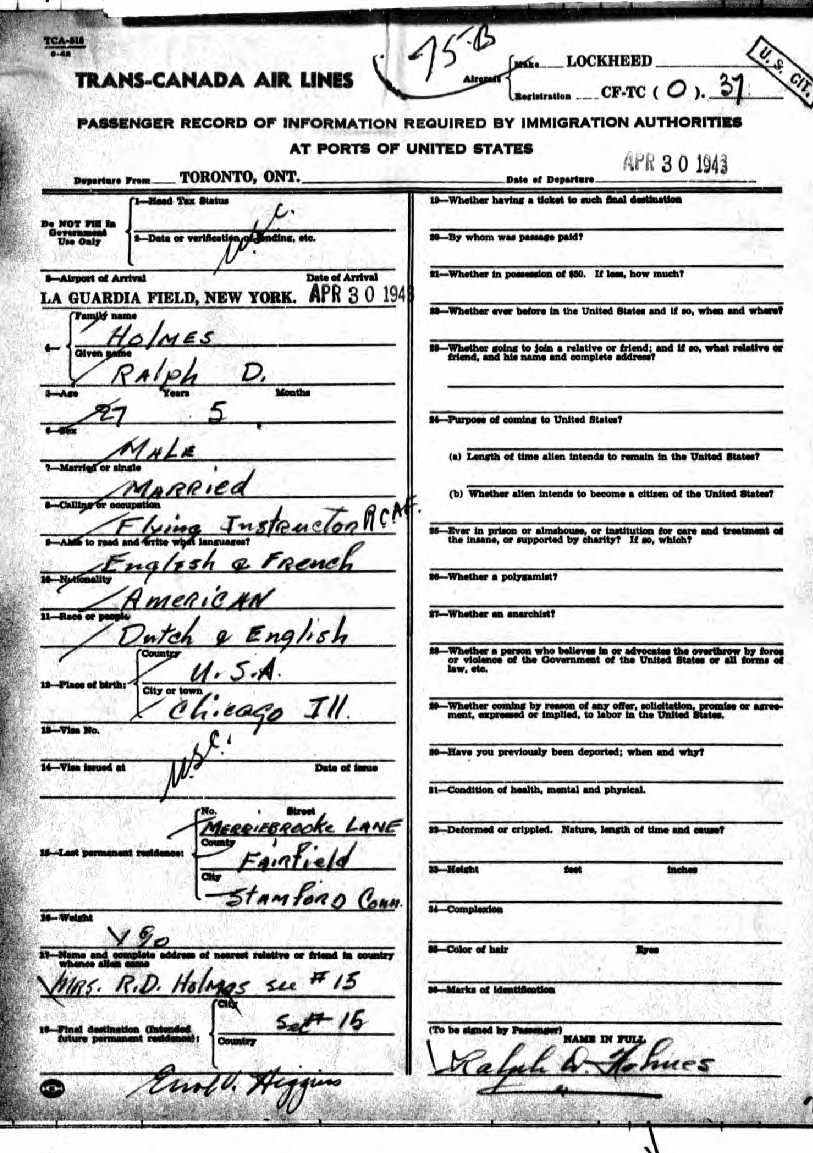 TCA-518
6-42
75-B
U. S. CIT.
TRANS-CANADA AIR LINES
Aircraft
Make LOCKHEED
Registration CF-TC ( O ). 37
PASSENGER RECORD OF INFORMATION REQUIRED BY IMMIGRATION AUTHORITIES
AT PORTS OF UNITED STATES
Departure From TORONTO, ONT. Date of Departure APR 30 1943
Do NOT Fill In
Government
Use Only
1—Head Tax Status
U.S.C.
2—Data or verification of landing, etc.
3—Airport of Arrival Date of Arrival
LA GUARDIA FIELD, NEW YORK. APR 30 194
4—
Family name
HOLMES
Given name
RALPH D.
5—Age Years Months
27 5
6—Sex
MALE
7—Married or single
MARRIED
8—Calling or occupation
Flying Instructor RCAF.
9—Able to read and write what languages?
English & French
10—Nationality
AMERICAN
11—Race or people
Dutch & English
12—Place of birth:
Country
U.S.A.
City or town
Chicago Ill.
13—Visa No.
U.S.C.
14—Visa issued at Date of issue
15—Last permanent residence:
No. Street
MERRIEBROOKE LANE
County
Fairfield
City
STAMFORD Conn.
16—Weight
190
17—Name and complete address of nearest relative or friend in country
whence alien came
MRS. R.D. Holmes see # 15
18—Final destination (Intended
future permanent residence):
City
See # 15
Country
19—Whether having a ticket to such final destination
20—By whom was passage paid?
21—Whether in possession of $50. If less, how much?
22—Whether ever before in the United States and if so, when and where?
23—Whether going to join a relative or friend; and if so, what relative or
friend, and his name and complete address?
24—Purpose of coming to United States?
(a) Length of time alien intends to remain in the United States?
(b) Whether alien intends to become a citizen of the United States?
25—Ever in prison or almshouse, or institution for care and treatment of
the insane, or supported by charity? If so, which?
26—Whether a polygamist?
27—Whether an anarchist?
28—Whether a person who believes in or advocates the overthrow by force
or violence of the Government of the United States or all forms of
law, etc.
29—Whether coming by reason of any offer, solicitation, promise or agree-
ment, expressed or implied, to labor in the United States.
30—Have you previously been deported; when and why?
31—Condition of health, mental and physical.
32—Deformed or crippled. Nature, length of time and cause?
33—Height feet inches
34—Complexion
35—Color of hair Eyes
36—Marks of identification
(To be signed by Passenger)
NAME IN FULL
Ralph D. Holmes
Errol V. Higgins